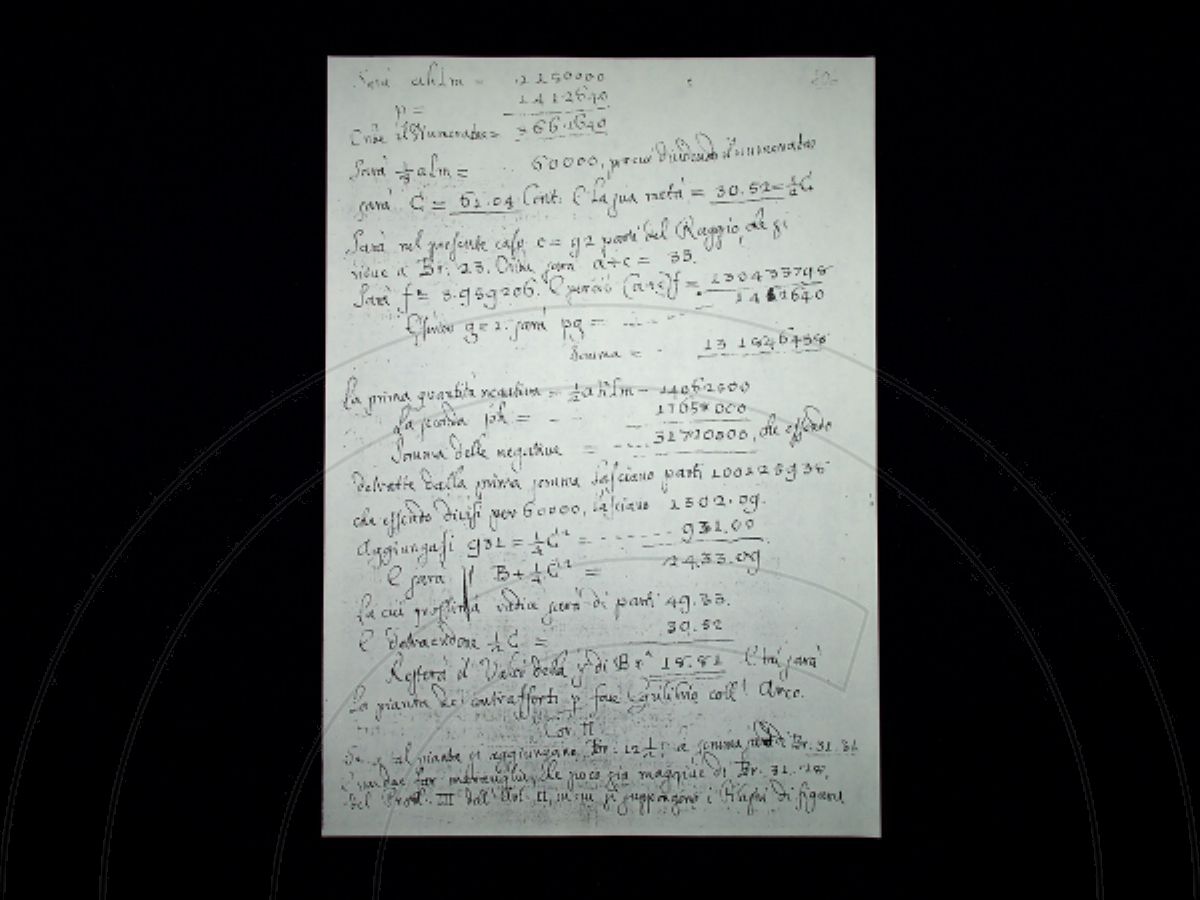 Sarà ahlm = 2250000
p = 1412640
Onde il Numeratore = 3661640
Sarà ½alm = 60000, perciò dividendo il numeratore
sarà C = 61.04 Cont. E la sua metà = 30.52 = ½C
Sarà nel presente caso c = 92 parti del Raggio, che si
riduce a Br. 23. Onde sarà a+c = 35.
Sarà f = 3.959206. E perciò (a+c)f = 130433798
Essendo g=1. sarà pg = 1412640
Somma = 131846438
La prima quantità negativa = ½ah²lm = 14062500
La seconda = 17658000
Somma delle negative = 31720500, che essendo
detratte dalla prima somma lasciano parti 100125938
che essendo divisi per 60000, lasciano 1502.09.
Aggiungasi 931 = ¼C² = 931.00
E sarà B+¼C² = 2433.09
La cui prossima radice sarà di parti 49.33.
E detraendone ½C = 30.52
Resterà il Valor della y di Br. 18.81 E tal sarà
La pianta de contrafforti p. fare Equilibrio coll' Arco.
Cor. II
Se a tal pianta si aggiungano Br. 12½ la somma sarà di Br. 31.31
maraviglia, che poco sia maggiore di Br. 31.
del Prob. III dell' II, in cui si suppongono i di figura